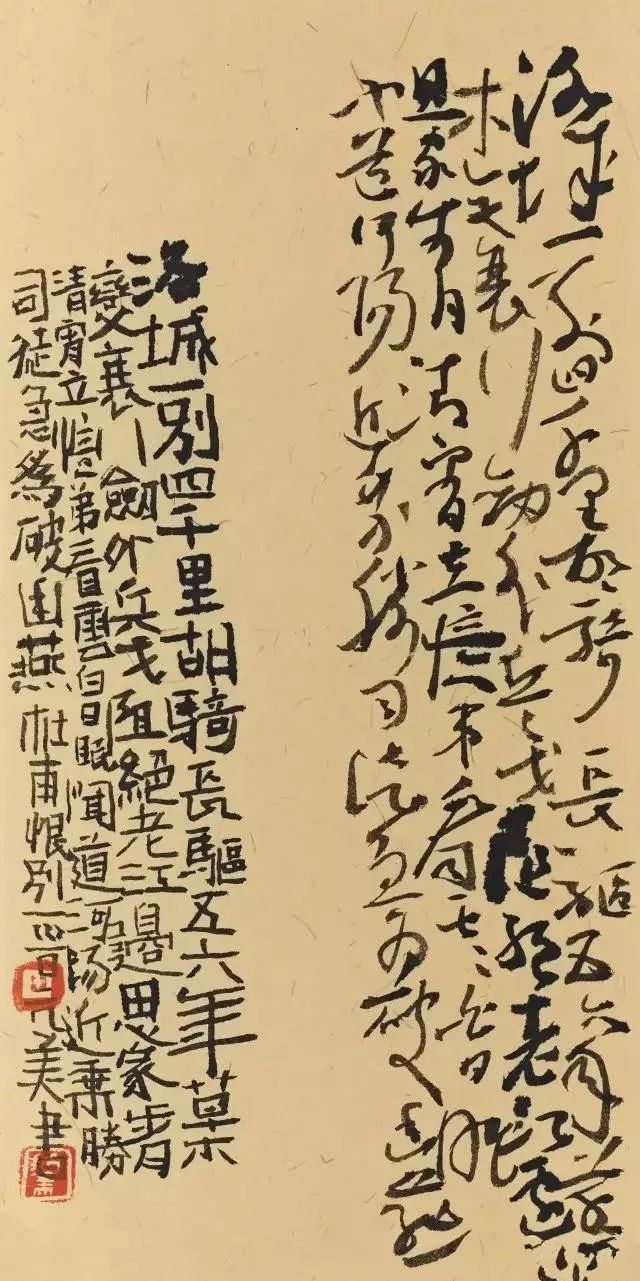 洛城一別四千里胡騎長驅五六年草
木變衰行劍外兵戈阻絕老江邊
思家步月清宵立憶弟看雲白日眠
聞道河陽近乘勝司徒急為破幽燕
洛城一別四千里胡騎長驅五六年草木
變衰行劍外兵戈阻絕老江邊思家步月
清宵立憶弟看雲白日眠聞道河陽近乘勝
司徒急為破幽燕杜甫恨別一首美書